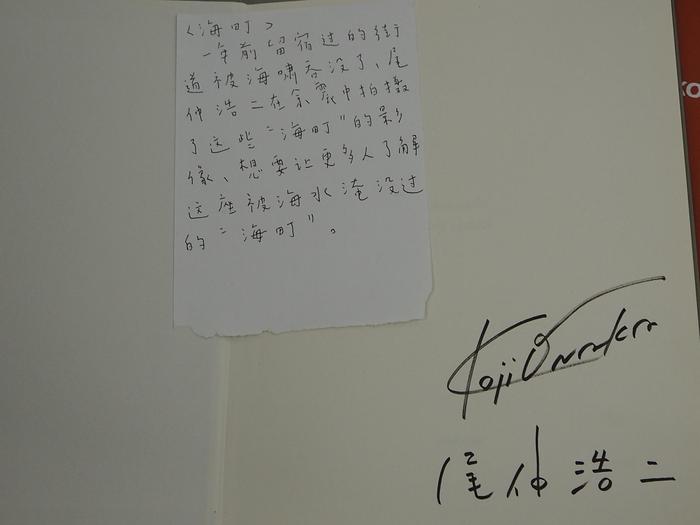 〈海町〉
一年前留宿过的街
道被海啸吞没了、尾
仲浩二在余震中拍摄
了这些“海町”的影
像、想要让更多人了解
这座被海水淹没过
的“海町”。
Koji Onaka
尾仲浩二